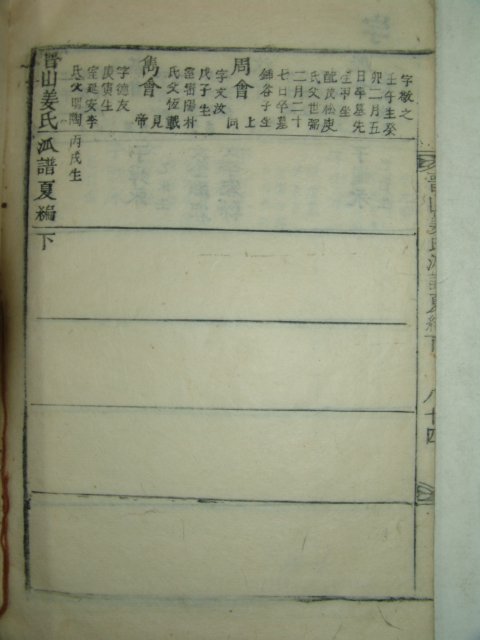 字敬之
壬午生癸
卯二月五
日卒墓先
塋甲坐
配茂松庾
氏父世弼
二月二十
七日卒墓
鉢谷子坐
周會 上同
字文汝
戊子生
室密陽朴
氏父恆載
雋會 見帝
字德友
庚寅生
室延安李
氏父明陶 丙戌生
晋山姜氏派譜夏編下
晋山姜氏派譜夏編下 八十四